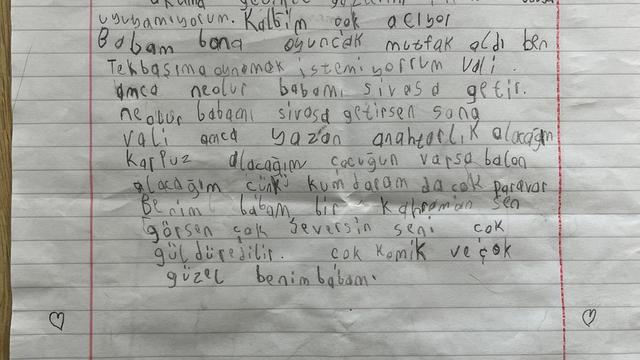 uyuyamıyorum. Kalbim çok acıyor
Babam bana oyuncak mutfak aldı ben
Tekbaşıma oynamak istemiyorrum vali
amca neolur babamı sivasa getir.
neolur babamı sivasa getirsen sana
vali amca yazan anahtarlık alacağım
Karpuz alacağım çocuğun varsa balon
alacağım çünkü kumbaram da çok paravar
Benim babam bir kahraman sen
görsen çok seversin seni çok
güldüredilir. çok komik ve çok
güzel benimbabam.